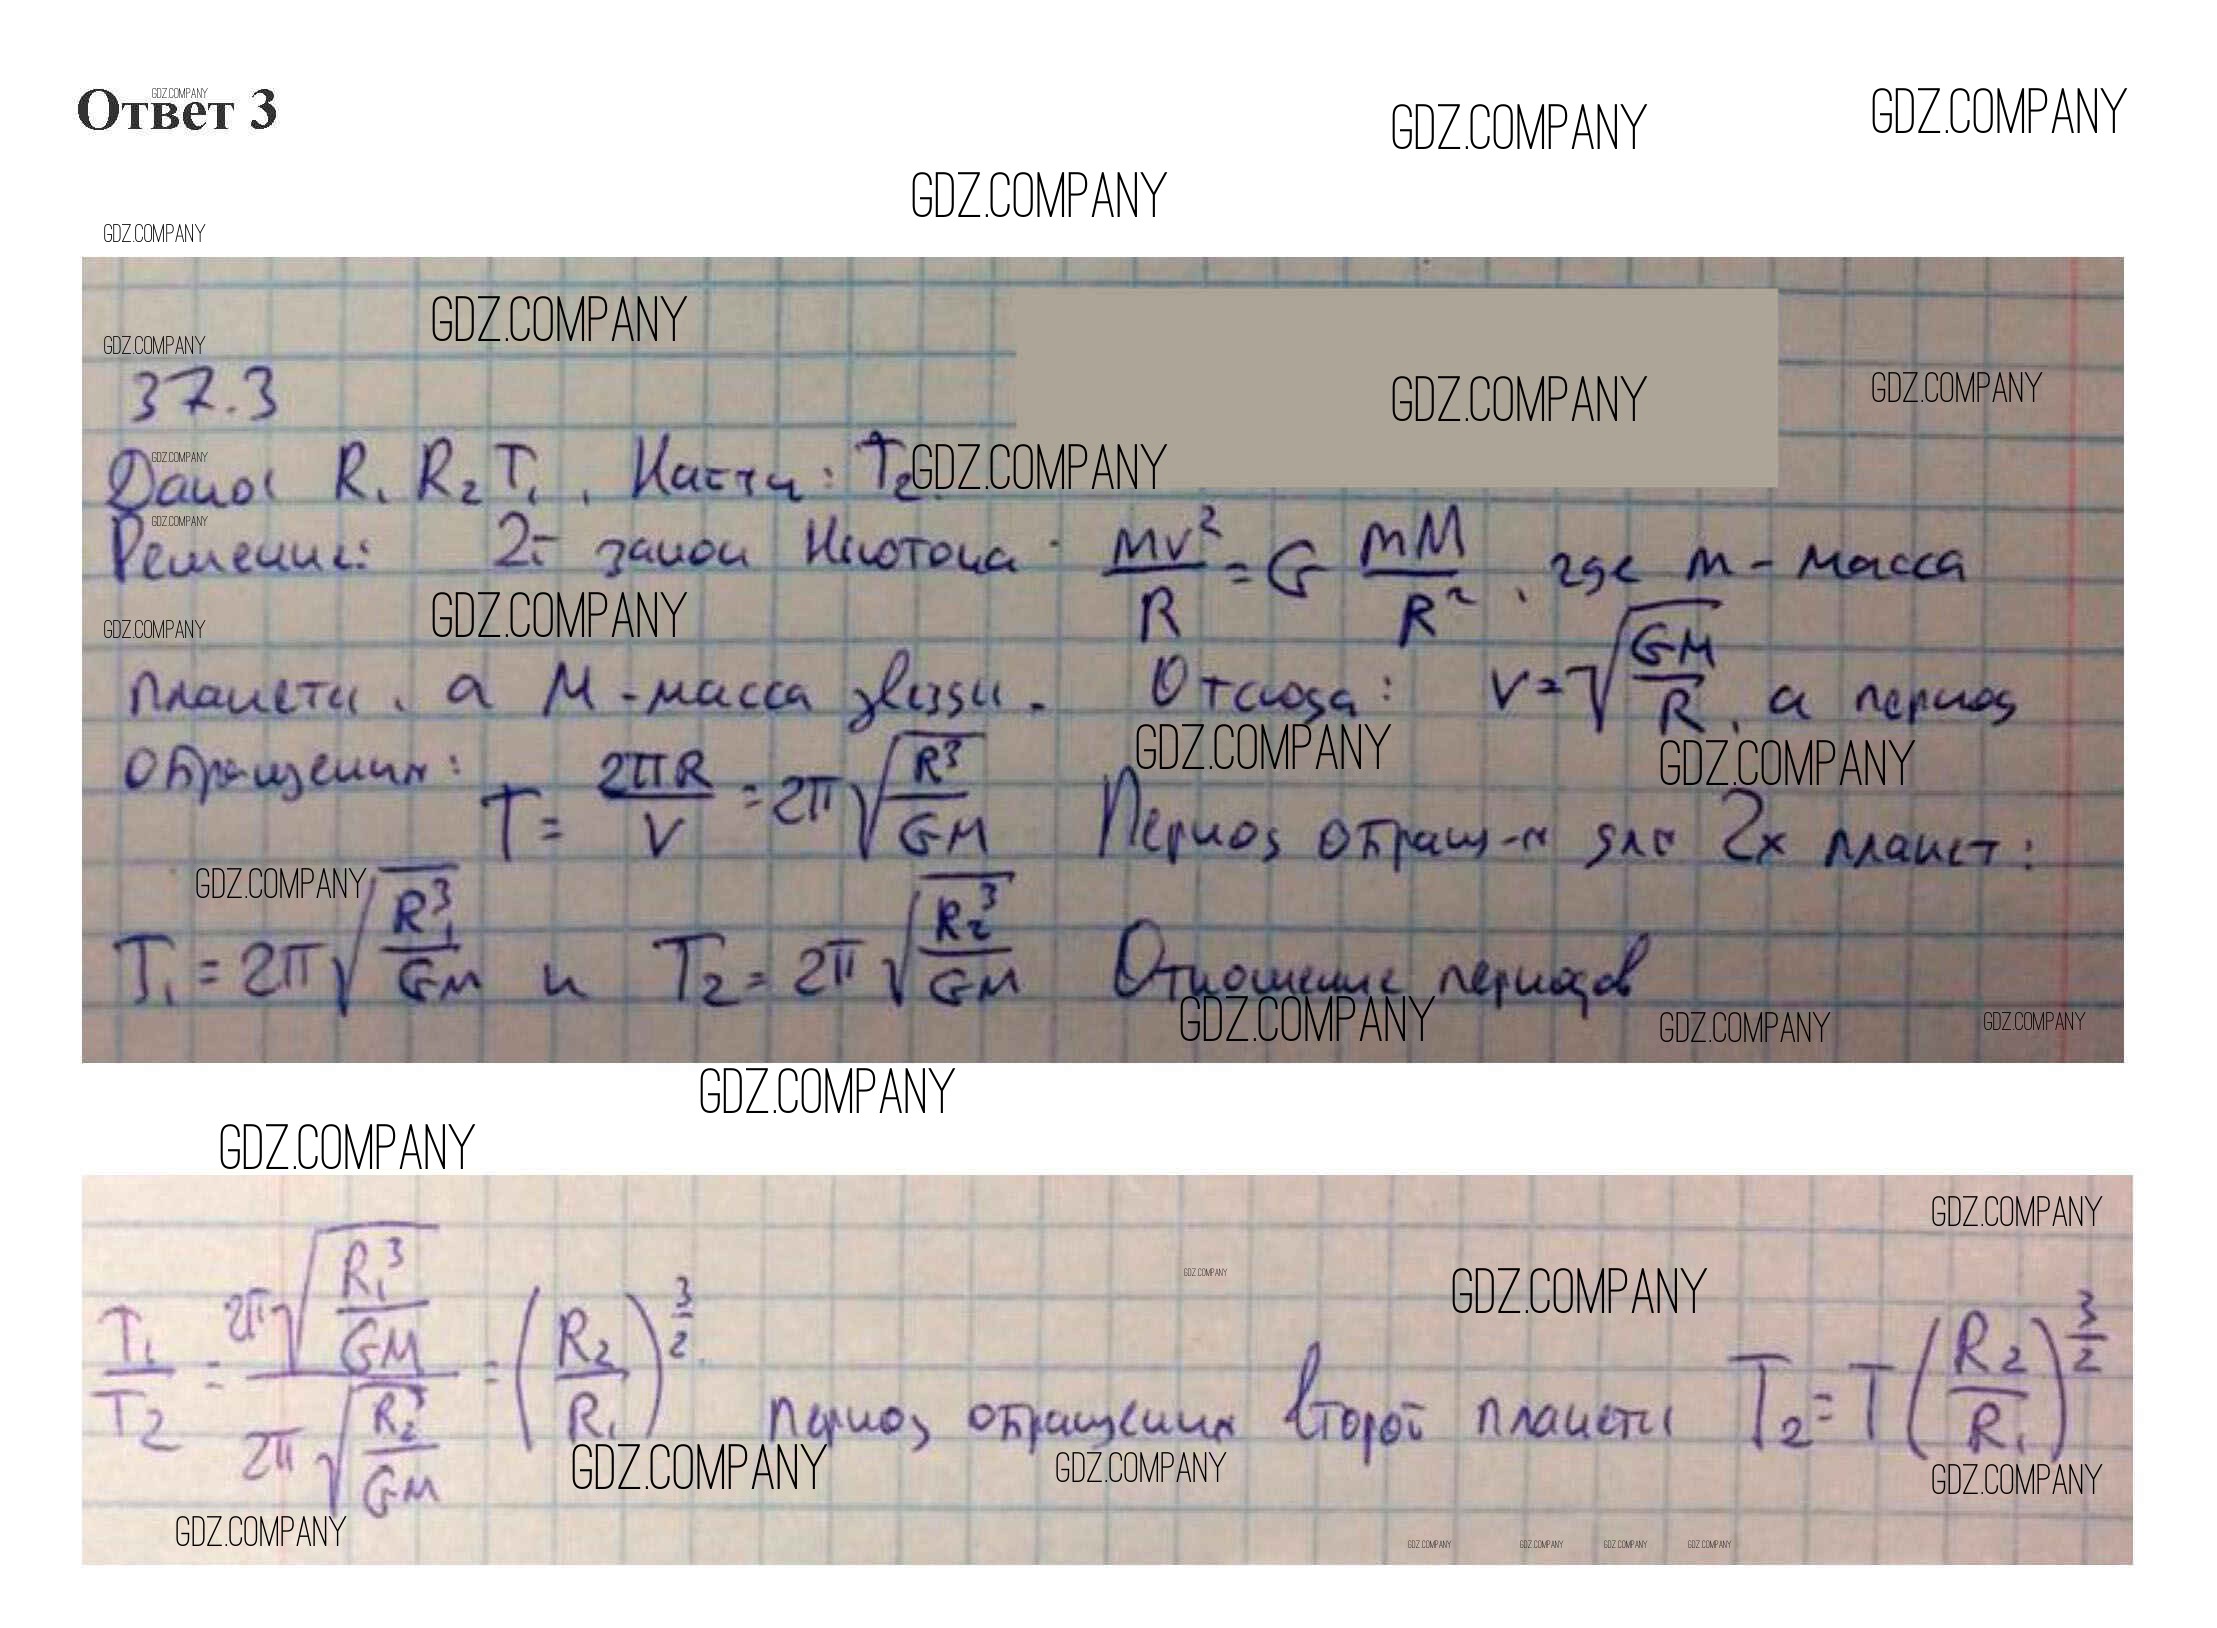 Ответ 3
GDZ.COMPANY
GDZ.COMPANY
GDZ.COMPANY
GDZ.COMPANY
GDZ.COMPANY
GDZ.COMPANY
GDZ.COMPANY
GDZ.COMPANY
GDZ.COMPANY
37.3
GDZ.COMPANY
Дано: R₁ R₂ T₁, Найти: T₂.
GDZ.COMPANY
GDZ.COMPANY
Решение: 2й закон Ньютона: mv²/R = G mM/R², где m - масса
GDZ.COMPANY
GDZ.COMPANY
планеты, а M - масса звезды. Отсюда: v = √(GM/R), а период
GDZ.COMPANY
GDZ.COMPANY
обращения: T = 2πR/v = 2π√(R³/GM) Период обращ-я для 2х планет:
GDZ.COMPANY
T₁ = 2π√(R₁³/GM) и T₂ = 2π√(R₂³/GM) Отношение периодов
GDZ.COMPANY
GDZ.COMPANY
GDZ.COMPANY
GDZ.COMPANY
GDZ.COMPANY
GDZ.COMPANY
GDZ.COMPANY
GDZ.COMPANY
T₁/T₂ = 2π√(R₁³/GM) / 2π√(R₂³/GM) = (R₂/R₁)^(3/2). период обращения второй планеты T₂ = T (R₂/R₁)^(3/2)
GDZ.COMPANY
GDZ.COMPANY
GDZ.COMPANY
GDZ.COMPANY
GDZ.COMPANY
GDZ.COMPANY
GDZ.COMPANY
GDZ.COMPANY